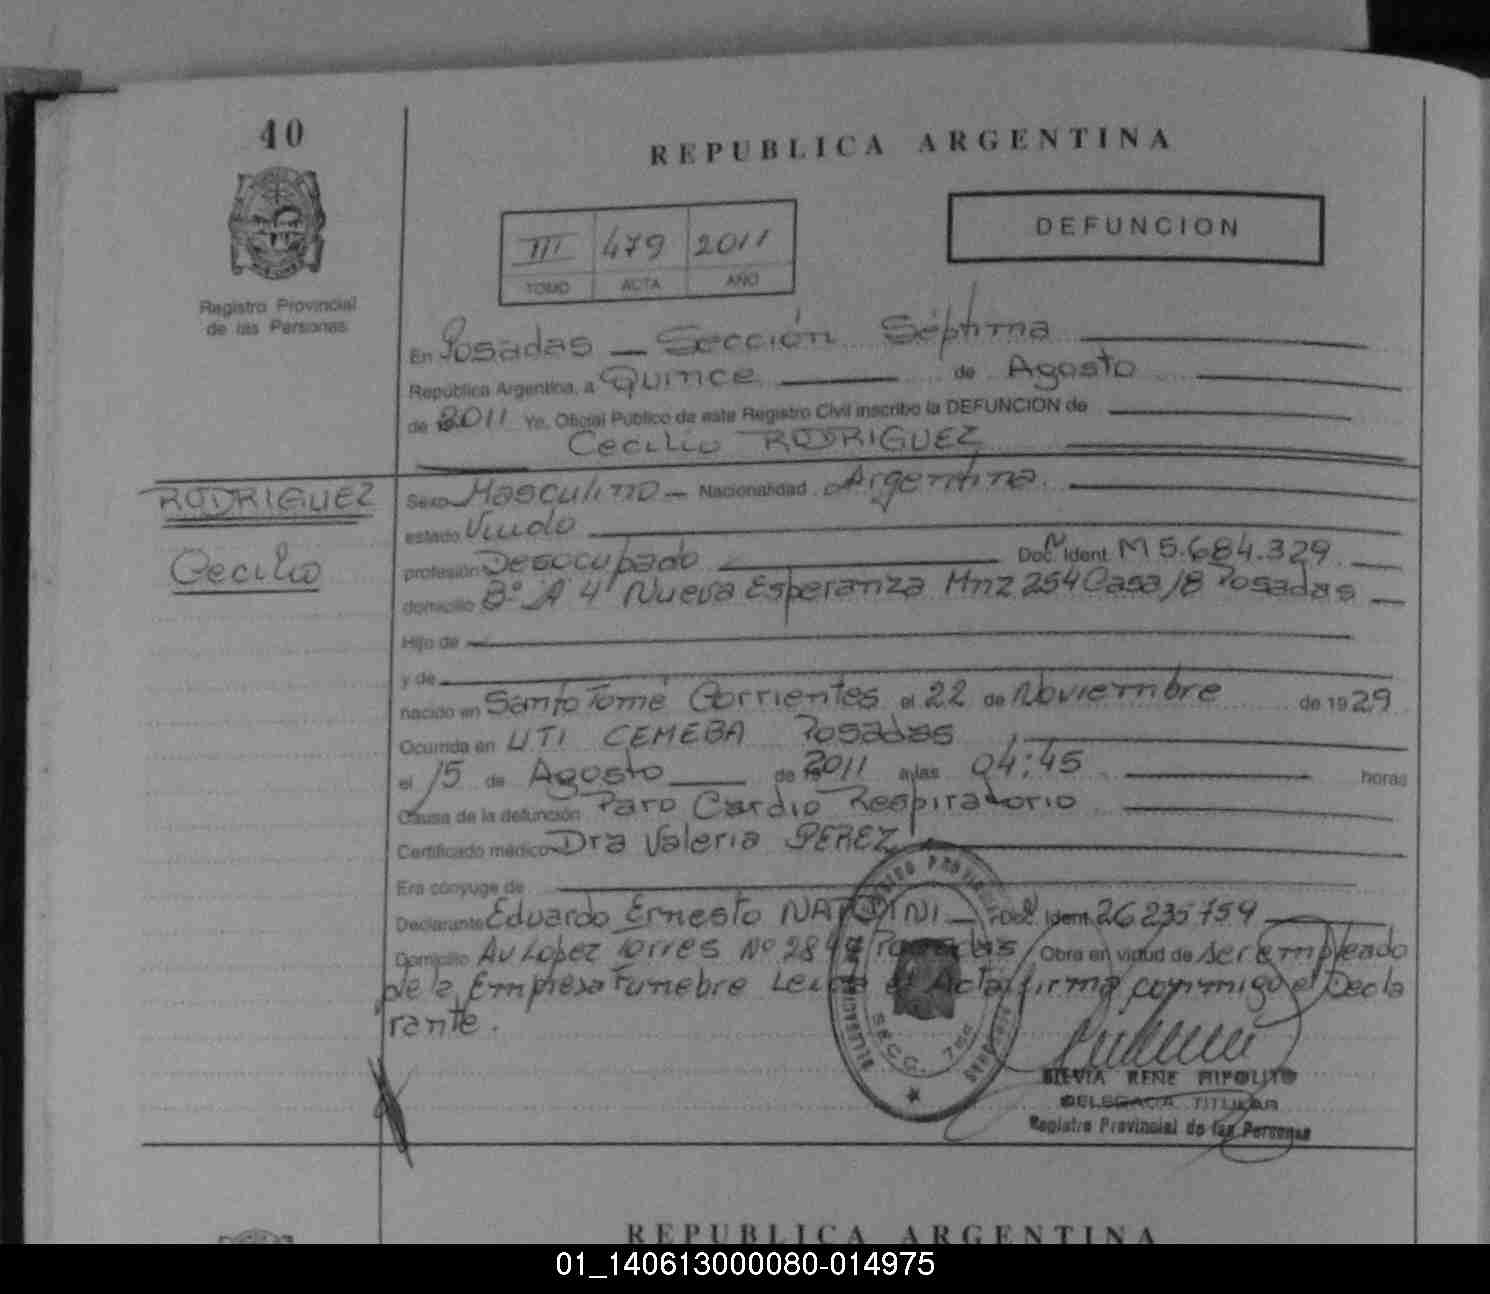 40
REPUBLICA ARGENTINA
DEFUNCION
III 479 2011
TOMO ACTA AÑO
Registro Provincial
de las Personas
En Posadas — Sección Séptima
República Argentina, a Quince de Agosto
de 2011 Yo, Oficial Público de este Registro Civil inscribo la DEFUNCION de
Cecilio RODRIGUEZ
RODRIGUEZ
Cecilio
Sexo Masculino — Nacionalidad Argentina.
estado Viudo
profesión Desocupado Doc. Ident. M 5.684.329.
domicilio Bº A 4 Nueva Esperanza Mnz 254 Casa 18 Posadas
Hijo de
y de
nacido en Santo Tomé Corrientes el 22 de Noviembre de 1929
Ocurrida en UTI CEMEBA Posadas
el 15 de Agosto de 2011 a las 04:45 horas
Causa de la defunción Paro Cardio Respiratorio
Certificado médico Dra Valeria PEREZ
Era cónyuge de
Declarante Eduardo Ernesto Doc. Ident. 26235759
Domicilio Av Lopez Torres Nº Posadas Obra en virtud de ser empleado
de la Empresa Funebre Leida el Acta firma conmigo el Decla
rante.
SECC. 7ma
SILVIA RENE HIPOLITO
DELEGADA TITULAR
Registro Provincial de las Personas
REPUBLICA ARGENTINA
01_140613000080-014975